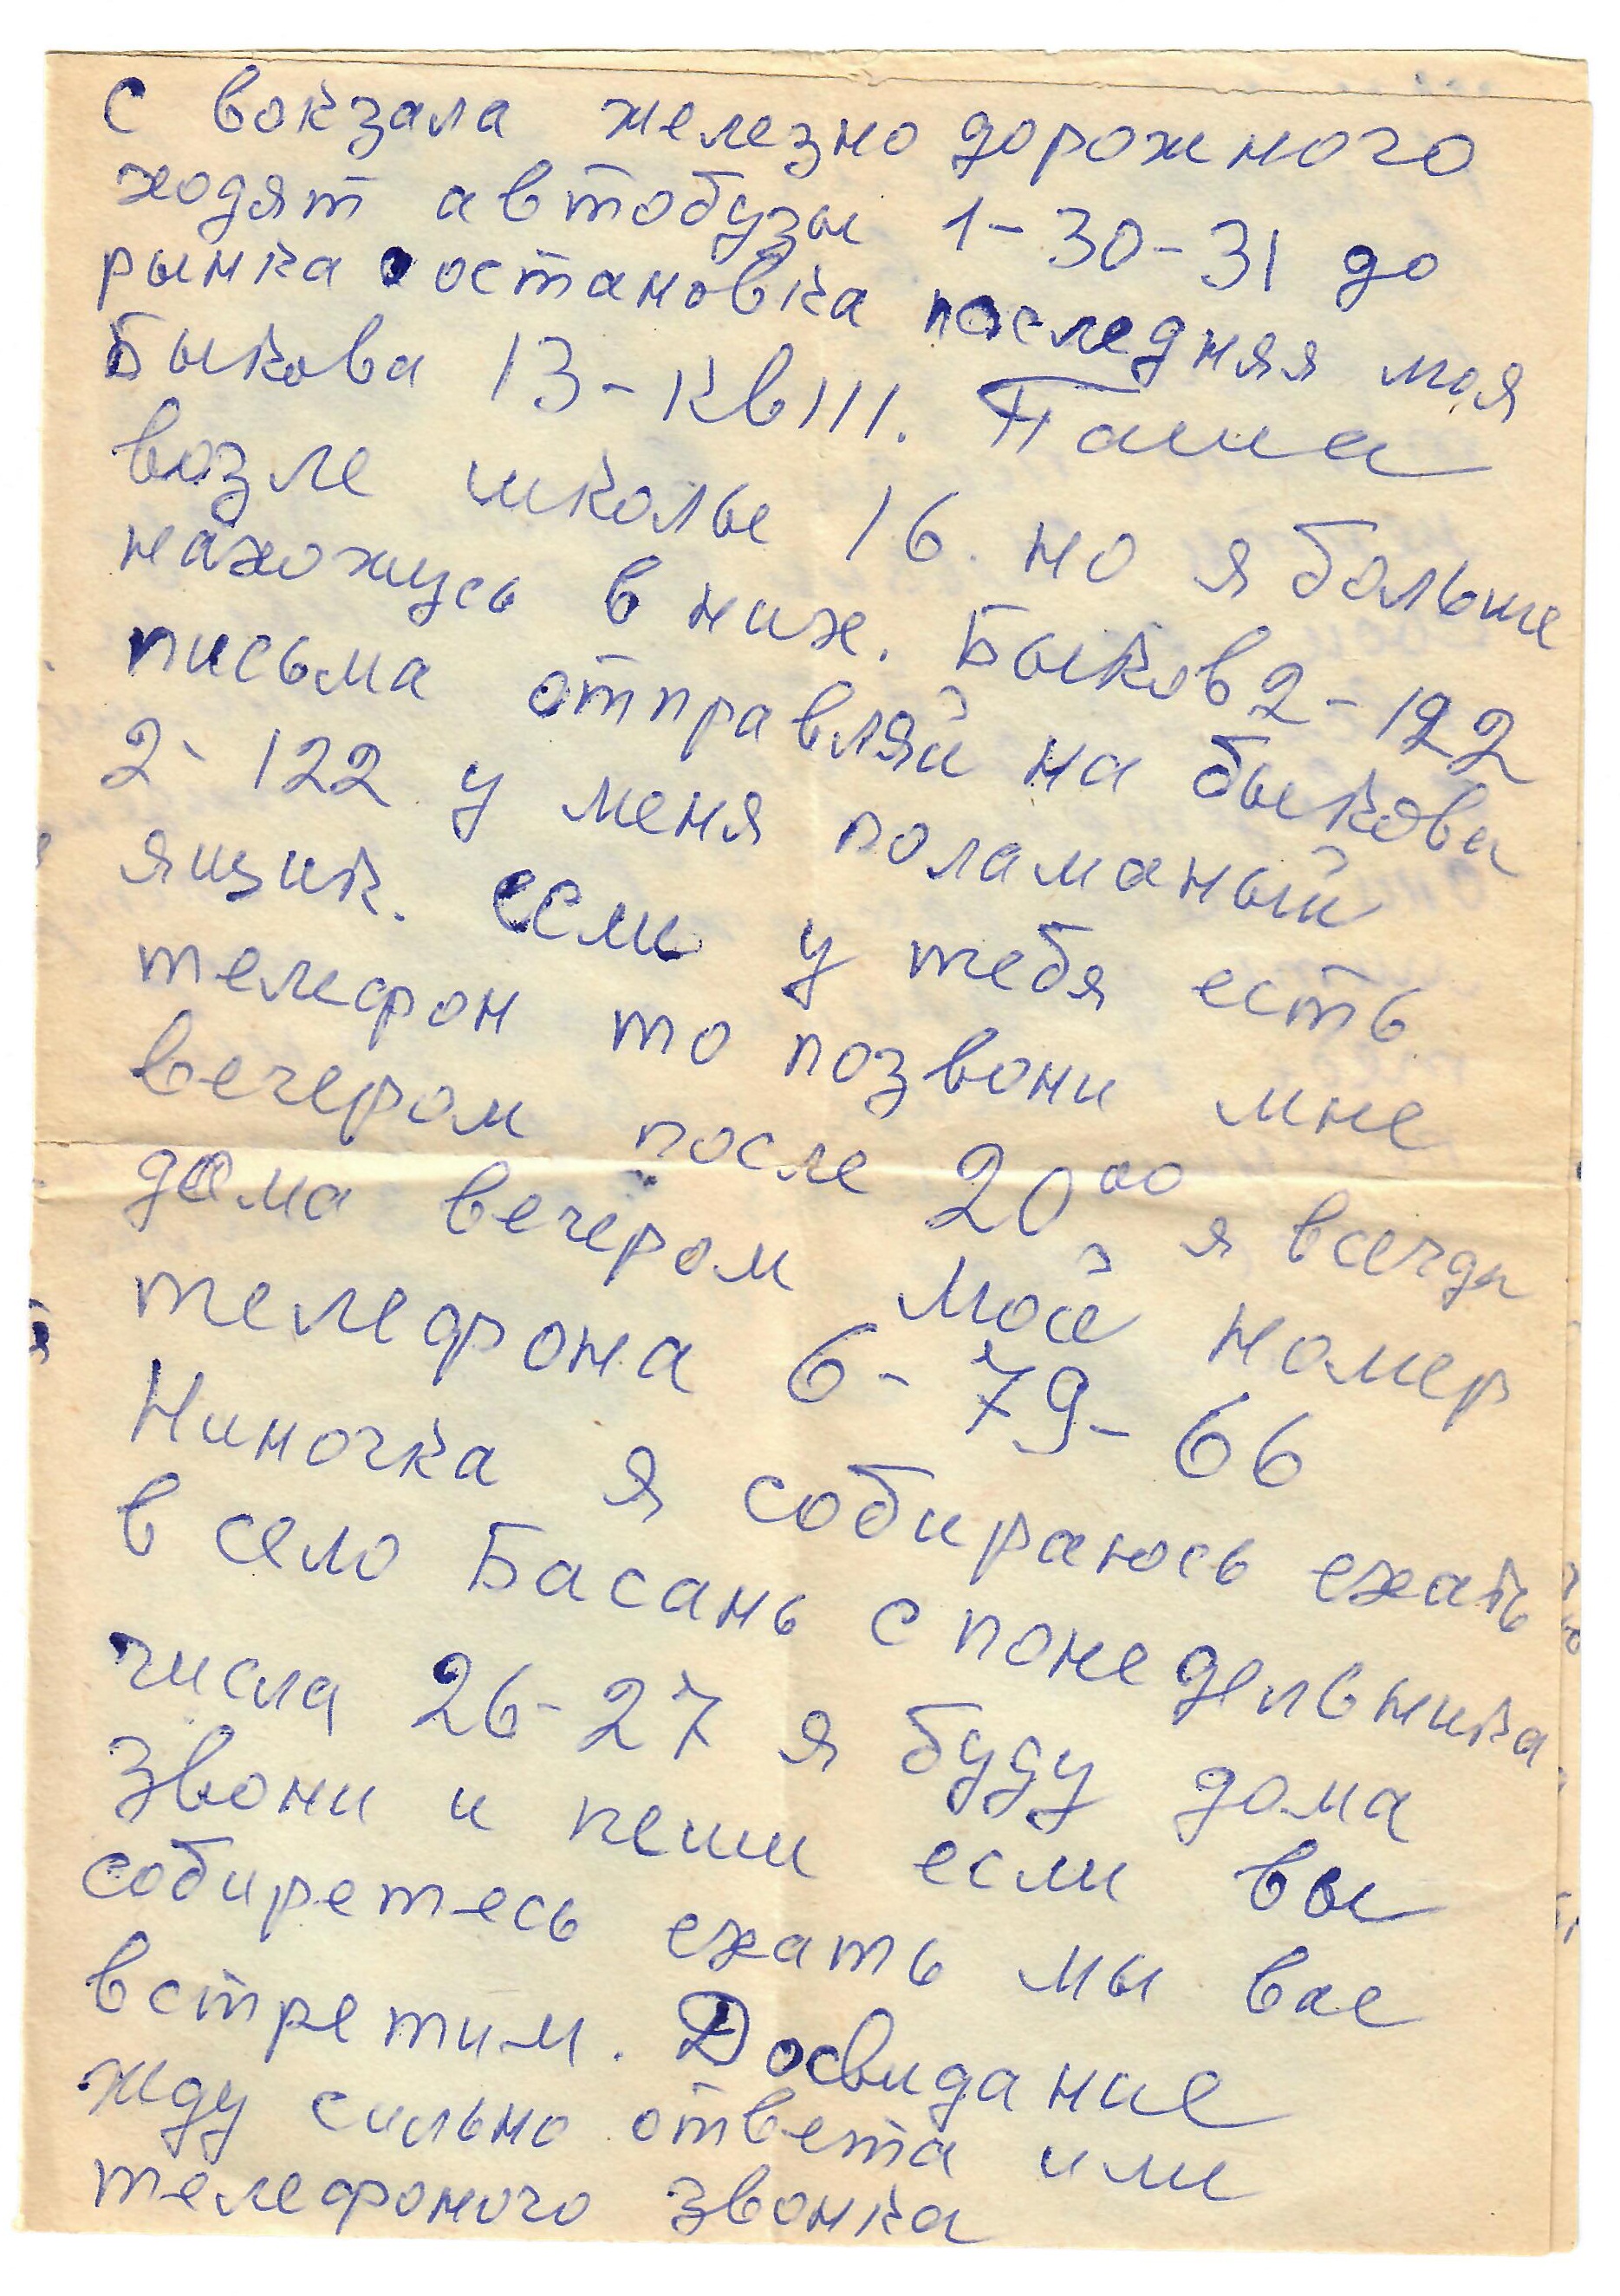 С вокзала железно дорожного
ходят автобузы 1-30-31 до
рынка остановка последняя моя
Быкова 13-кв 111. Паша
возле школы 16. но я больше
нахожусь в них. Быков 2-122
письма отправляй на быкова
2-122 у меня поламаный
ящик. если у тебя есть
телефон то позвони мне
вечером после 20⁰⁰ я всегда
дома вечером мой номер
телефона 6-79-66
Ниночка я собираюсь ехать
в село Басань с понедельника
числа 26-27 я буду дома
звони и пеши если вы
собиретесь ехать мы вас
встретим. Досвидание
жду сильно ответа или
телефоного звонка